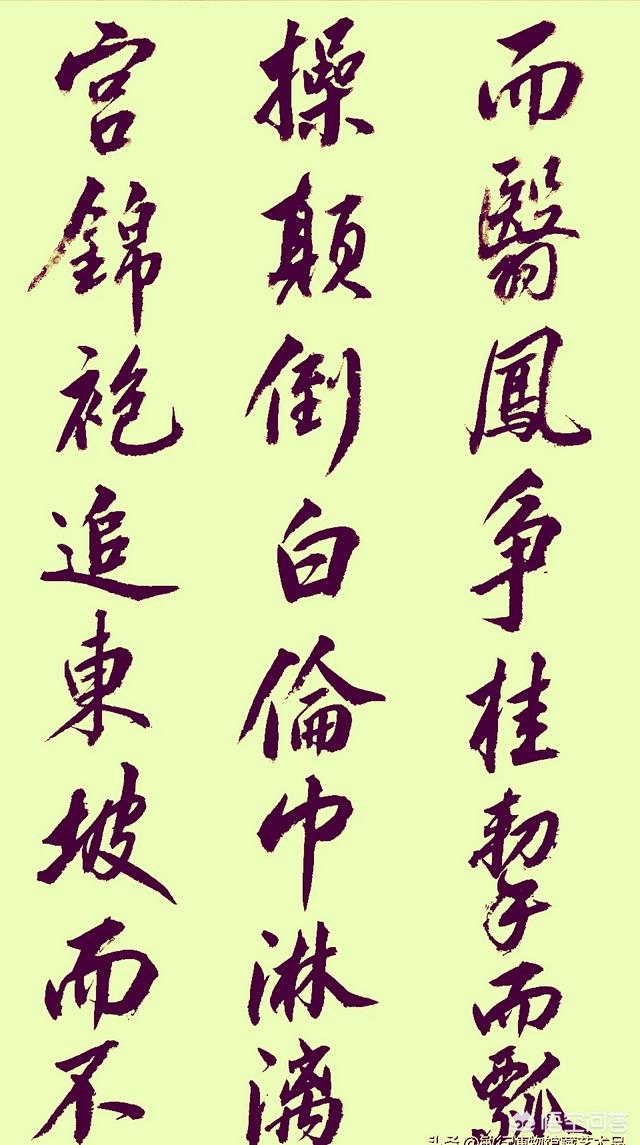 而翳鳳争桂挈而瓢
操顛倒白倫巾淋漓
宮錦袍追東坡而不
悟空问答